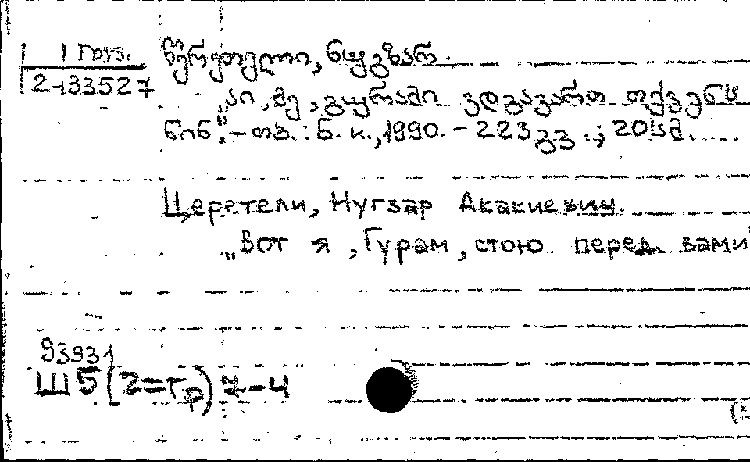 1 груз.
2-133527
წერეთელი, ნუგზარ.
„აი, მე, გურამი ვდგავართ თქვენს
წინ". – თბ. : ნ. к., 1990. – 223 გვ. ; 20 სმ.
Церетели, Нугзар Акакиевич.
„Вот я, Гурам, стою перед вами
93931
Ш5(2=Гр)7-4